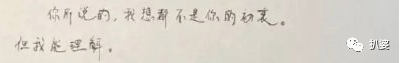 你所说的,我想都不是你的初衷。
但我能理解。
扒娱